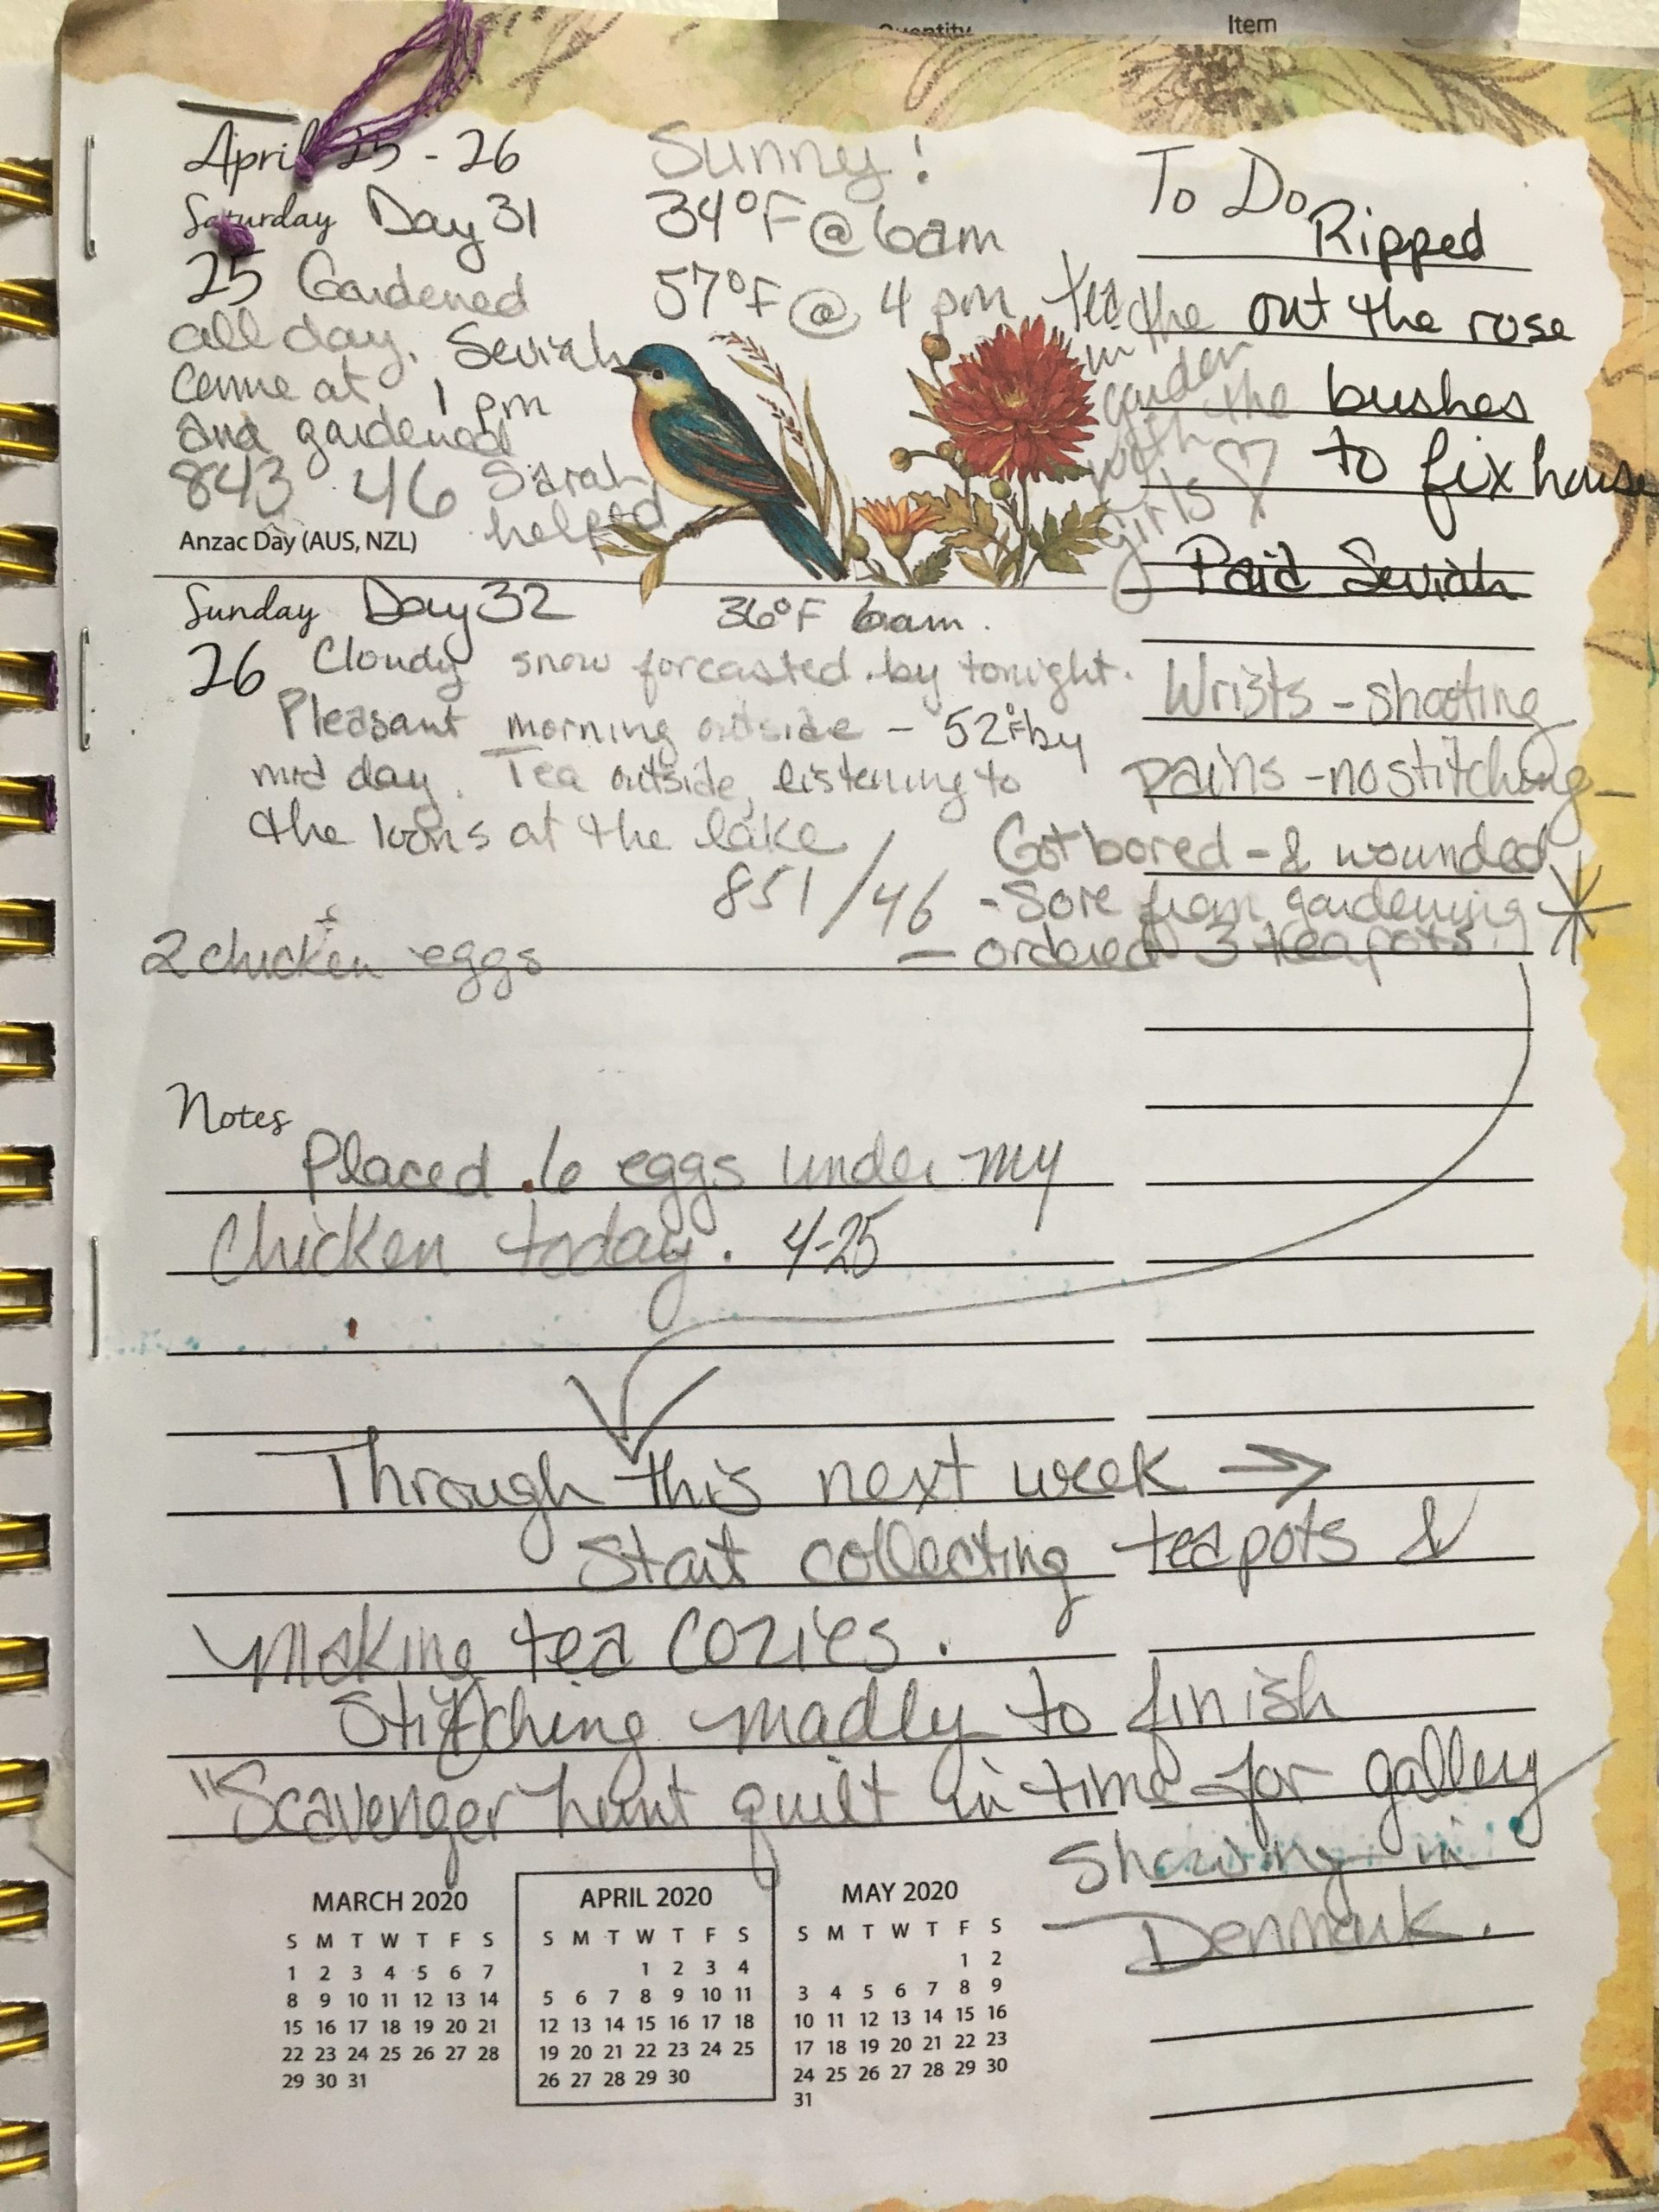 Quantity Item
April 25 - 26
Sunny!
Saturday Day 31
34°F @ 6am
25 Gardened
57°F @ 4 pm
all day. Seviah
came at 1 pm
and gardened
843 46 Sarah
helped
Anzac Day (AUS, NZL)
tea
in the
garden
with the
girls ♡
To Do
Ripped
the out the rose
bushes
to fix house
Paid Seviah
Sunday Day 32 36°F 6am.
26 Cloudy snow forecasted by tonight.
Pleasant morning outside - 52°F by
mid day. Tea outside, listening to
the loons at the lake
851/46
2 chicken eggs
Wrists - shooting
pains - no stitching -
Got bored - & wounded
- Sore from gardening
- ordered 3 teapots
Notes
Placed 6 eggs under my
chicken today. 4-25
Through this next week →
Start collecting teapots &
making tea cozies.
Stitching madly to finish
"Scavenger hunt quilt in time for gallery
Showing in
Denmark.
MARCH 2020
S M T W T F S
1 2 3 4 5 6 7
8 9 10 11 12 13 14
15 16 17 18 19 20 21
22 23 24 25 26 27 28
29 30 31
APRIL 2020
S M T W T F S
1 2 3 4
5 6 7 8 9 10 11
12 13 14 15 16 17 18
19 20 21 22 23 24 25
26 27 28 29 30
MAY 2020
S M T W T F S
1 2
3 4 5 6 7 8 9
10 11 12 13 14 15 16
17 18 19 20 21 22 23
24 25 26 27 28 29 30
31